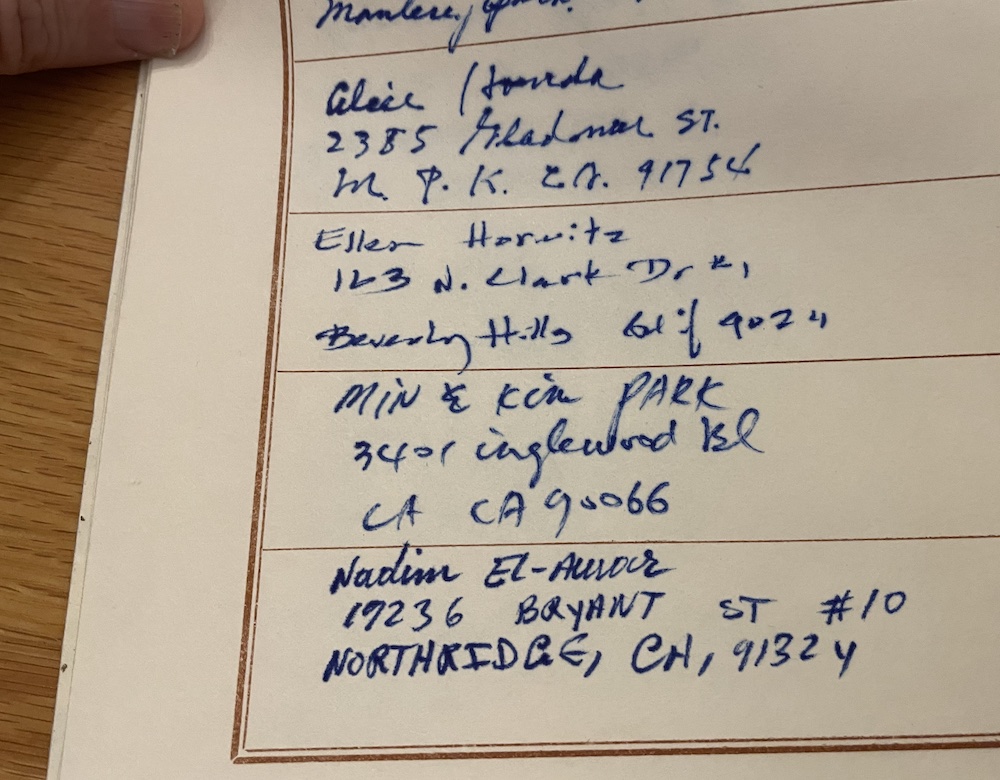 Alice Honda
2385 Gladmar ST.
M. P. K. CA. 91754
Ellen Horwitz
123 N. Clark Dr #1
Beverly Hills Calif 90211
MIN & Kim PARK
3401 inglewood Bl
CA CA 90066
Nadim
19236 BRYANT ST #10
NORTHRIDGE, CA, 91324